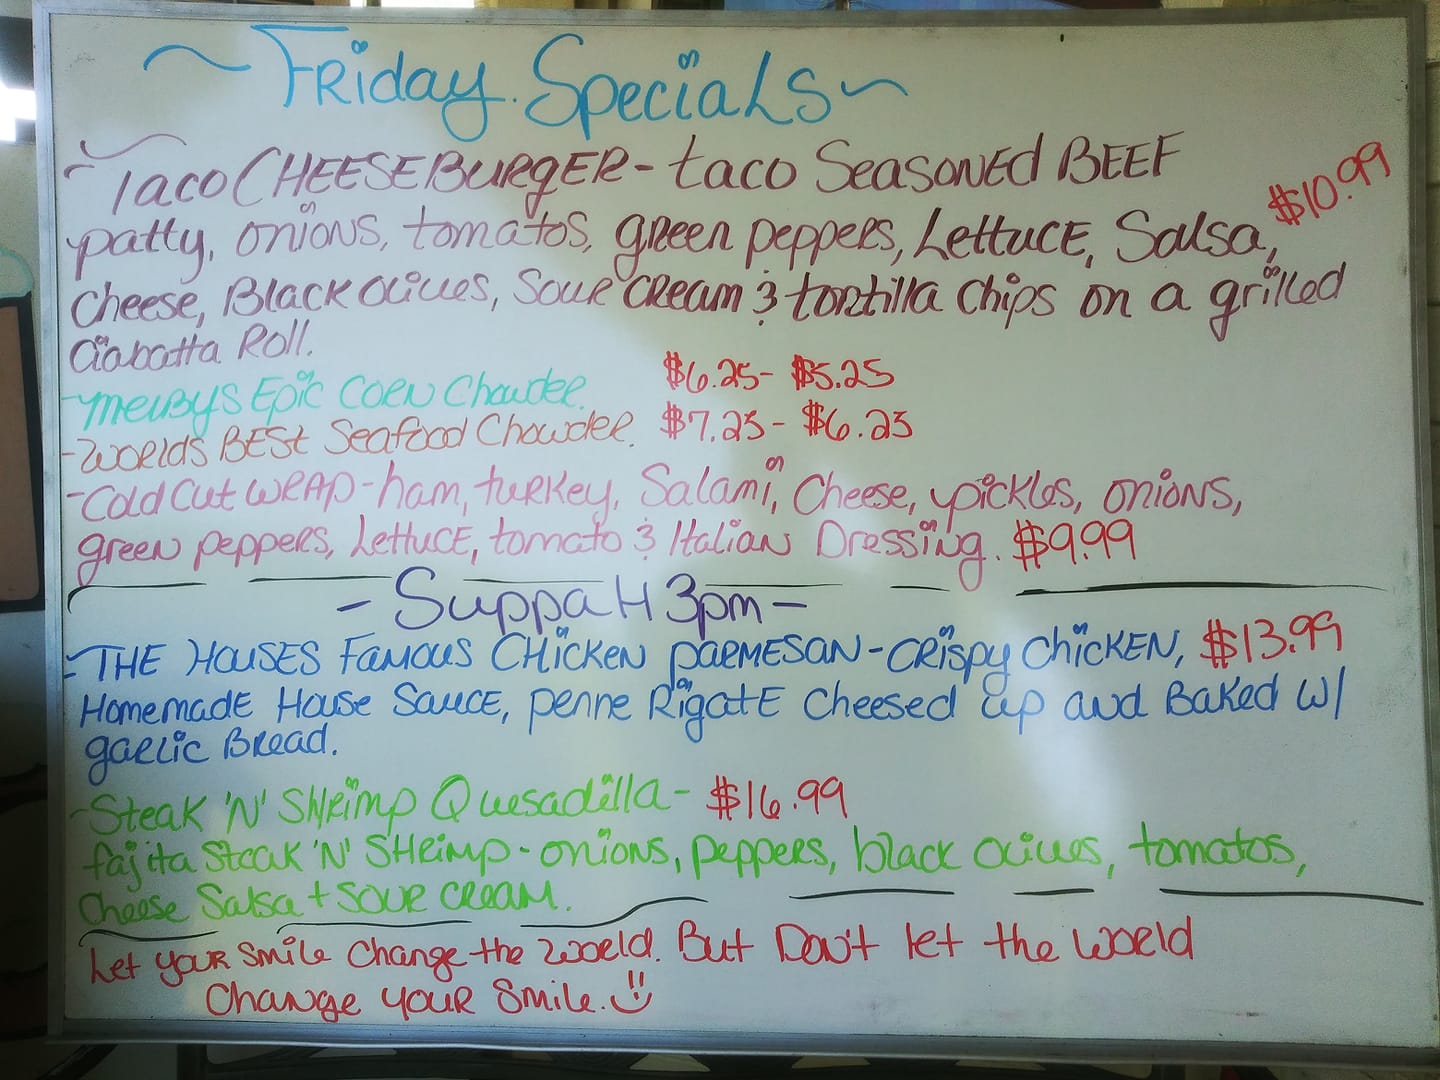 ~ Friday Specials ~
- Taco CHEESEBURGER - taco SEASONED BEEF
patty, onions, tomatos, green peppers, Lettuce, Salsa, $10.99
Cheese, Black olives, Sour Cream & tortilla Chips on a grilled
Ciabatta Roll.
- Melbys Epic Corn Chowder. $6.25 - $5.25
- Worlds BEST Seafood Chowder. $7.25 - $6.25
- Cold Cut WRAP - ham, turkey, Salami, Cheese, pickles, onions,
green peppers, Lettuce, tomato & Italian Dressing. $9.99
- SuppaH 3pm -
- THE HOUSES Famous CHICKEN PARMESAN - CRISPY CHICKEN, $13.99
Homemade House Sauce, penne Rigate Cheesed up and Baked w/
garlic Bread.
- Steak 'N' SHRimp Quesadilla - $16.99
fajita Steak 'N' SHRimp - onions, peppers, black olives, tomatos,
Cheese Salsa + Sour Cream.
Let your Smile Change the World. But Don't let the world
Change your Smile.